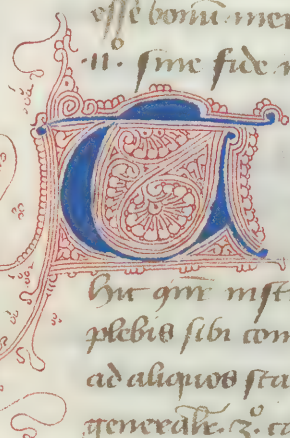 esse bonū mer
.11.º sine fide n
T
hic qm̄ inst
plebis sibi com
ad aliquos sta
generalr̄. 2.º co